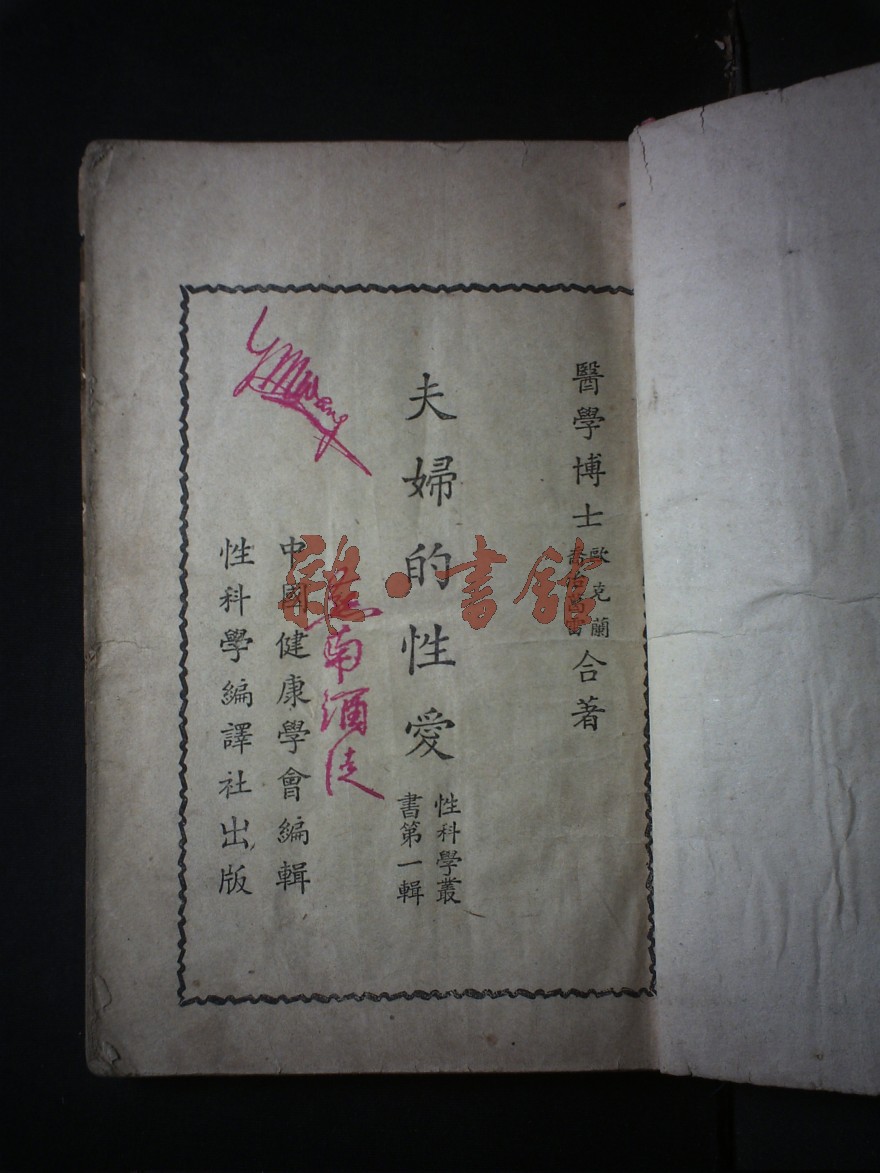 醫學博士
歐克蘭
合著
夫婦的性愛
性科學叢
書第一輯
中國健康學會編輯
性科學編譯社出版
南酒徒
雜·書館